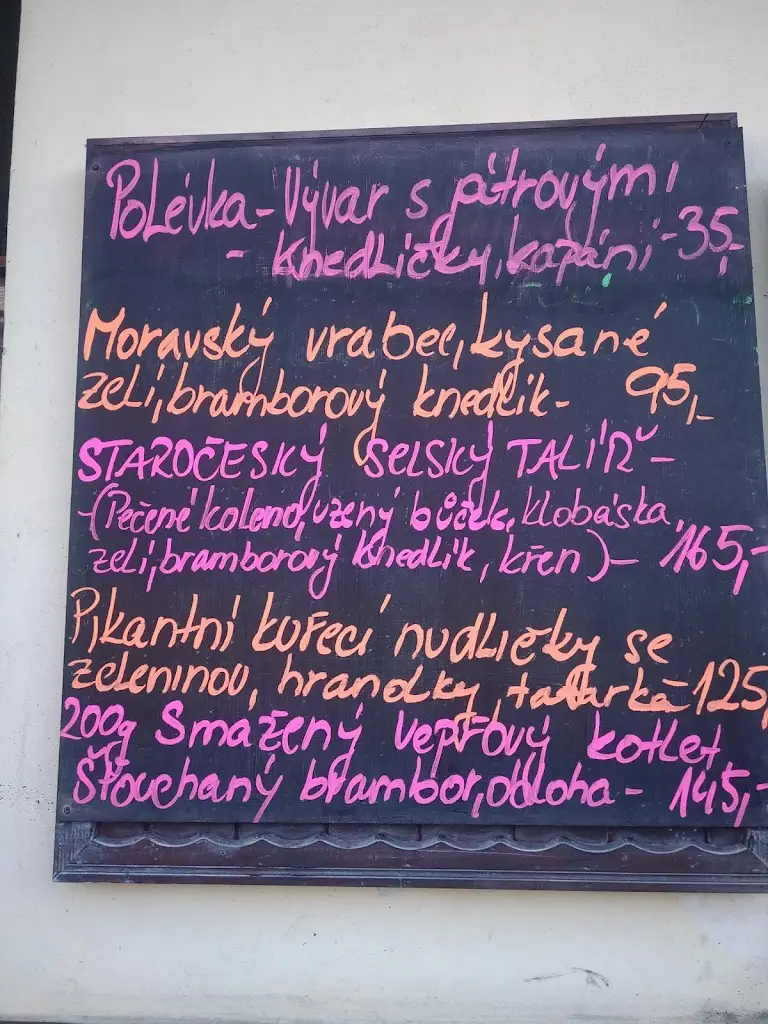 Polévka - Vývar s játrovými
- knedlíčky, kapání - 35,-
Moravský vrabec, kysané
zelí, bramborový knedlík - 95,-
STAROČESKÝ SELSKÝ TALÍŘ -
- (Pečené koleno, uzený bůček, klobáska,
zelí, bramborový knedlík, křen) - 165,-
Pikantní kuřecí nudličky se
zeleninou, hranolky, tatarka - 125,
200g Smažený vepřový kotlet
Šťouchaný brambor, obloha - 145,-